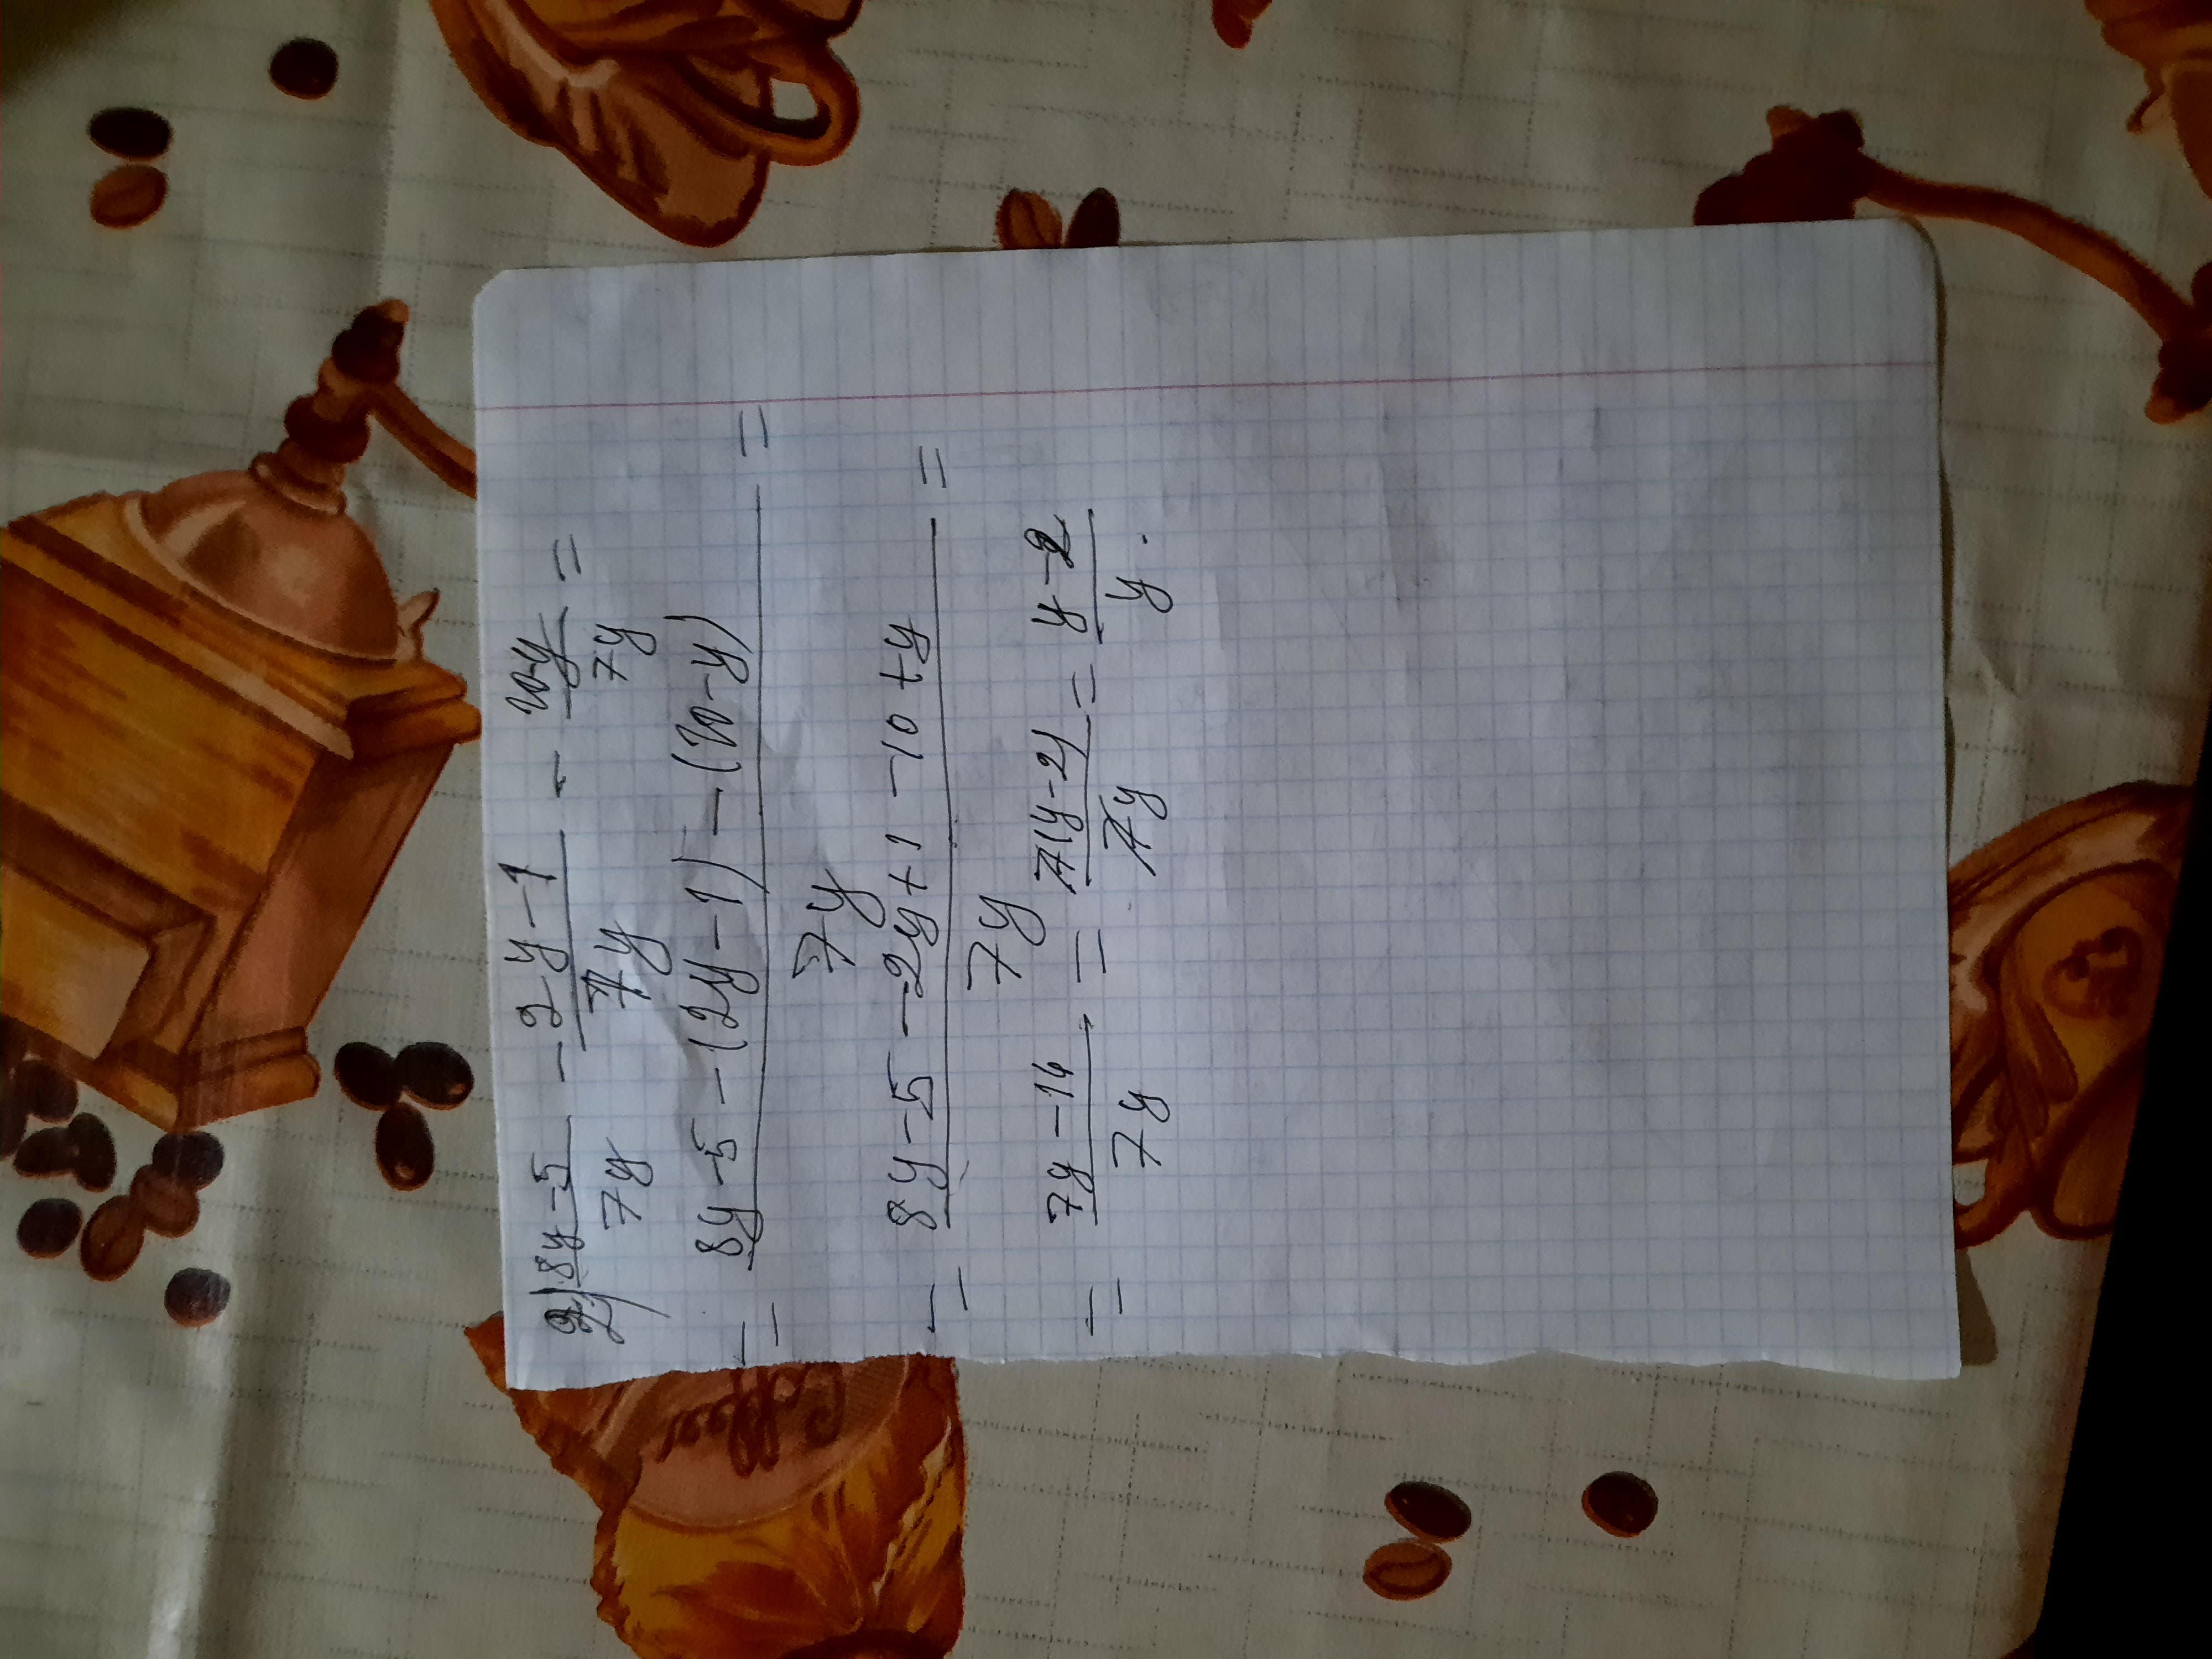 2) 8y-5/7y - 2y-1/7y - 10-y/7y =
= 8y-5-(2y-1)-(10-y)/7y =
= 8y-5-2y+1-10+y/7y =
= 7y-14/7y = 7(y-2)/7y = y-2/y.
Coffee